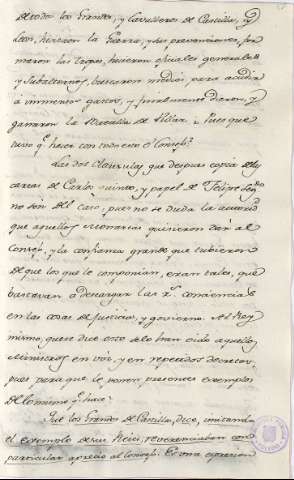 de todos los Grandes, y Cavalleros de Castilla, y
Leon, hicieron la Guerra, y las prevenciones, for
maron las tropas, hicieron oficiales generales
y subalternos, buscaron medios para acudir
a inmensos gastos, y finalmente dieron, y
ganaron la Batalla de Villar. Pues que
tuvo q.e hacer con todo esto el Consejo?
Las dos clausulas que despues copia de las
cartas de Carlos quinto, y papel de Felipe Seg.do
no son del caso, pues no se duda la autorid.
que aquellos Monarcas quisieron dar al
Consejo, y la confianza grande que tubieron
de que los que le componian, eran tales, que
bastavan a descargar las r.s conciencias
en las cosas de Justicia, y govierno. Al Rey
mismo, que se dice esto se lo han oido aquellos
Ministros en voz, y en repetidos decretos,
pues para que le ponen presentes exemplos
de lo mismo q.e hace?
Que los Grandes de Castilla, dice, imitando
el exemplo de sus Reies, reverenciaban con
particular aprecio al Consejo. Es otra expresion